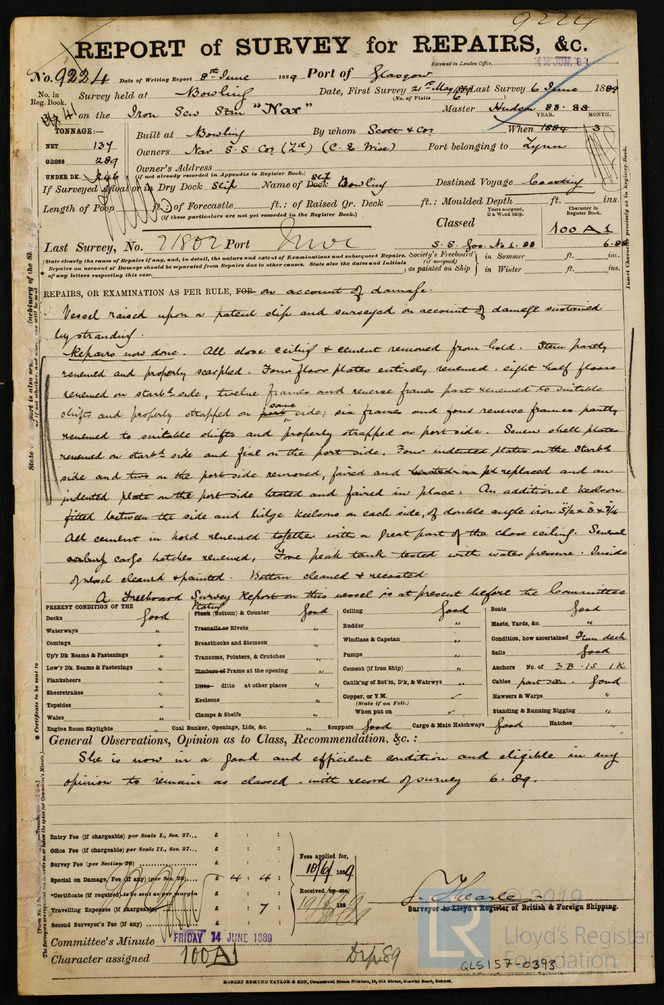 9224
REPORT of SURVEY for REPAIRS, &c.
Received in London Office,
No. 9224 Date of Writing Report 8th June 1889 Port of Glasgow
No. in Reg. Book. Survey held at Bowling Date, First Survey 21st May Last Survey 6 June 1889
(No. of Visits 6)
on the Iron Scw Stm "Nar" Master Hudson 88-88
YEAR. MONTH.
TONNAGE:— Built at Bowling By whom Scott & Cos When 1884 3
NET 137 Owners Nar S. S. Cos (Ld) (C. E. Wise) Port belonging to Lynn
GROSS 289 Owner's Address
(if not already recorded in Appendix to Register Book.)
UNDER DK. 246
If Surveyed afloat or in Dry Dock Slip Name of Dock Slip Bowling Destined Voyage Coasting
Length of Poop ft.: of Forecastle ft.: of Raised Qr. Deck ft.: Moulded Depth ft. ins.
(If these particulars are not yet recorded in the Register Book.)
Years assigned, if a Wood Ship. Character in Register Book.
Classed 100 A1
Last Survey, No. 21802 Port S. S. Gos. No 1. 88 6.88
(State clearly the cause of Repairs if any, and, in detail, the nature and extent of Examinations and subsequent Repairs.
Repairs on account of Damage should be separated from Repairs due to other causes. State also the dates and Initials of any letters respecting this case.
Society's Freeboard (if assigned) as painted on Ship in Summer ft. ins.
in Winter ft. ins.
REPAIRS, OR EXAMINATION AS PER RULE, FOR on account of damage.
Vessel raised upon a patent slip and surveyed on account of damage sustained
by stranding.
Repairs now done. All close ceiling & cement removed from hold. Stem partly
renewed and properly scarphed. Four floor plates entirely renewed. eight half floors
renewed on starbd side, twelve frames and reverse frames part renewed to suitable
shifts and properly strapped on port same side; six frames and four reverse frames partly
renewed to suitable shifts and properly strapped on port side. Seven shell plates
renewed on starbd side and five on the port side. Four indented plates on the starbd
side and two on the port side removed, faired and replaced and an
indented plate on the port side heated and faired in place. An additional keelson
fitted between the side and bilge keelsons on each side, of double angle iron 3½ x 3 x 7/16
All cement in hold renewed together with a great part of the close ceiling. Several
cargo hatches renewed, Fore peak tank tested with water pressure. Inside
of vessel cleaned & painted. Bottom cleaned & recoated
A Freeboard Survey Report on this vessel is at present before the Committee
PRESENT CONDITION OF THE
Decks Good
Waterways "
Comings "
Up'r Dk. Beams & Fastenings "
Low'r Dk. Beams & Fastenings "
Planksheers "
Sheerstrakes "
Topsides "
Wales "
Engine Room Skylights "
Plank Plating (Bottom) & Counter Good
Treenails or Rivets "
Breasthooks and Stemson "
Transoms, Pointers, & Crutches "
Timbers or Frame at the opening "
Ditto ditto at other places "
Keelsons "
Clamps & Shelfs "
Coal Bunker, Openings, Lids, &c. "
Ceiling Good
Rudder "
Windlass & Capstan "
Pumps "
Cement (if Iron Ship) "
Caulk'ng of Bot'm, D'k, & Watrwys "
Copper, or Y.M.
(State if on Felt.)
When put on
Scuppers Good Cargo & Main Hatchways Good
Boats Good
Masts, Yards, &c. "
Condition, how ascertained From deck
Sails Good
Anchors No. of 3 B. 1 S 1 K
Cables Good
Hawsers & Warps "
Standing & Running Rigging "
Hatches "
General Observations, Opinion as to Class, Recommendation, &c.:
She is now in a good and efficient condition and eligible in my
opinion to remain as classed with record of survey 6. 89.
Entry Fee (if chargeable) per Scale I., Sec. 27... £ : :
Office Fee (if chargeable) per Scale II., Sec. 27... £ : :
Survey Fee (per Section 28) £ : :
Special on Damage, Fee (if any) (per Sec. 28) £ 4 : 4 :
Certificate (if required) to be sent as per margin
Travelling Expenses (if chargeable) £ : 7 :
Second Surveyor's Fee (if any) £ : :
Fees applied for, 10/6/ 1889
Received by me,
Surveyor to Lloyd's Register of British & Foreign Shipping.
Committee's Minute FRIDAY 14 JUNE 1889
Character assigned 100A1
© 2019
LR
Lloyd's Register
Foundation
GLS157-0393
ROBERT EDMUND TAYLOR & SON, Commercial Steam Printers, 19, Old Street, Goswell Road, London.